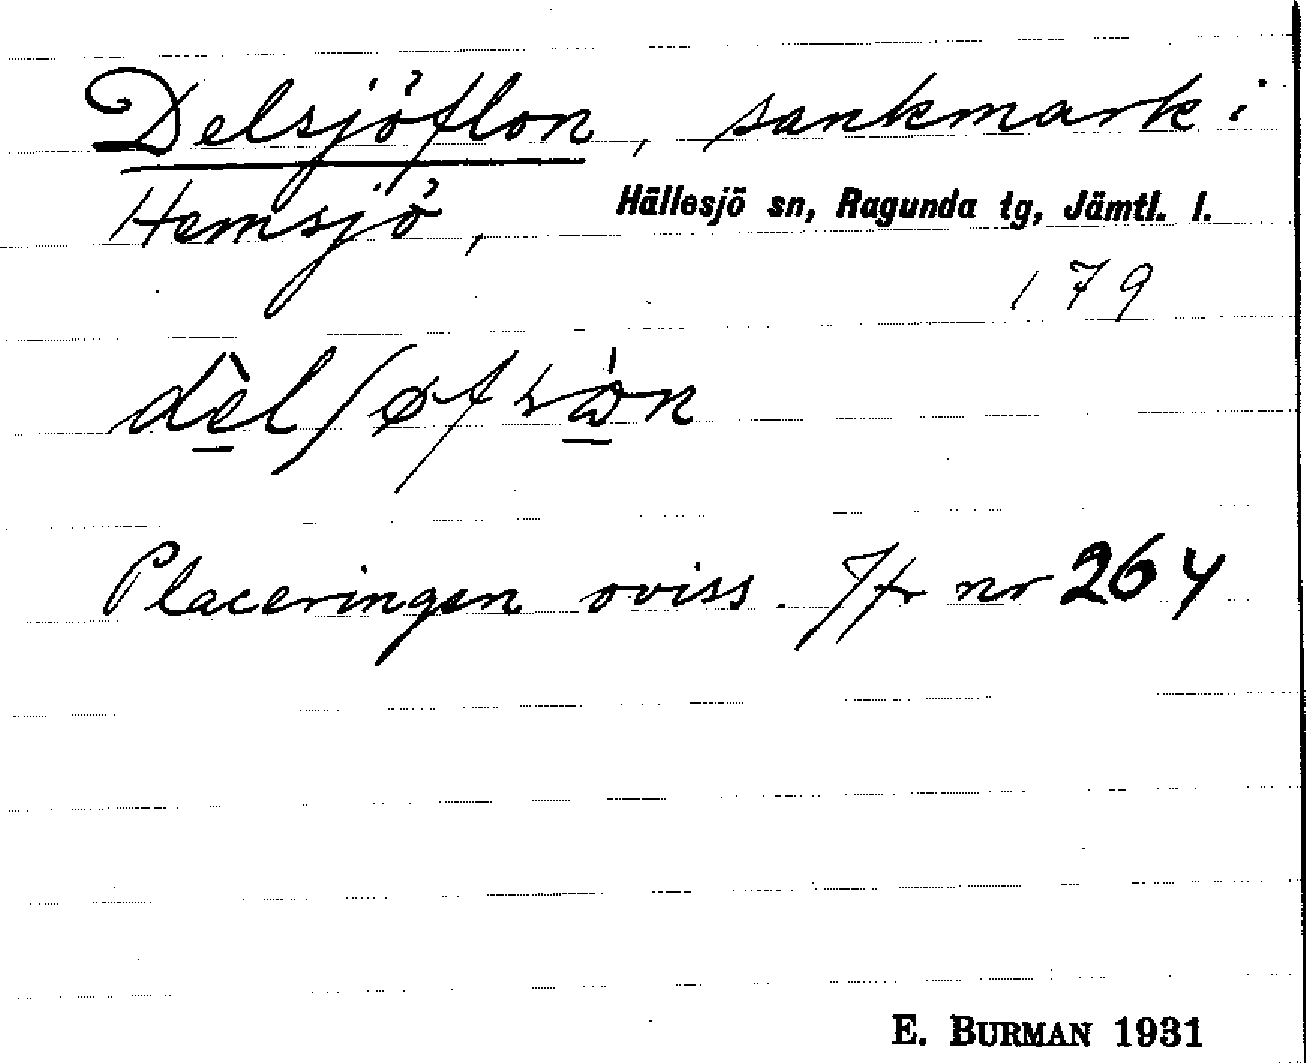 Delsjöflon, sankmark i
Hemsjö, Hällesjö sn, Ragunda tg, Jämtl. l.
179
Placeringen oviss. Jfr nr 264
E. BURMAN 1931